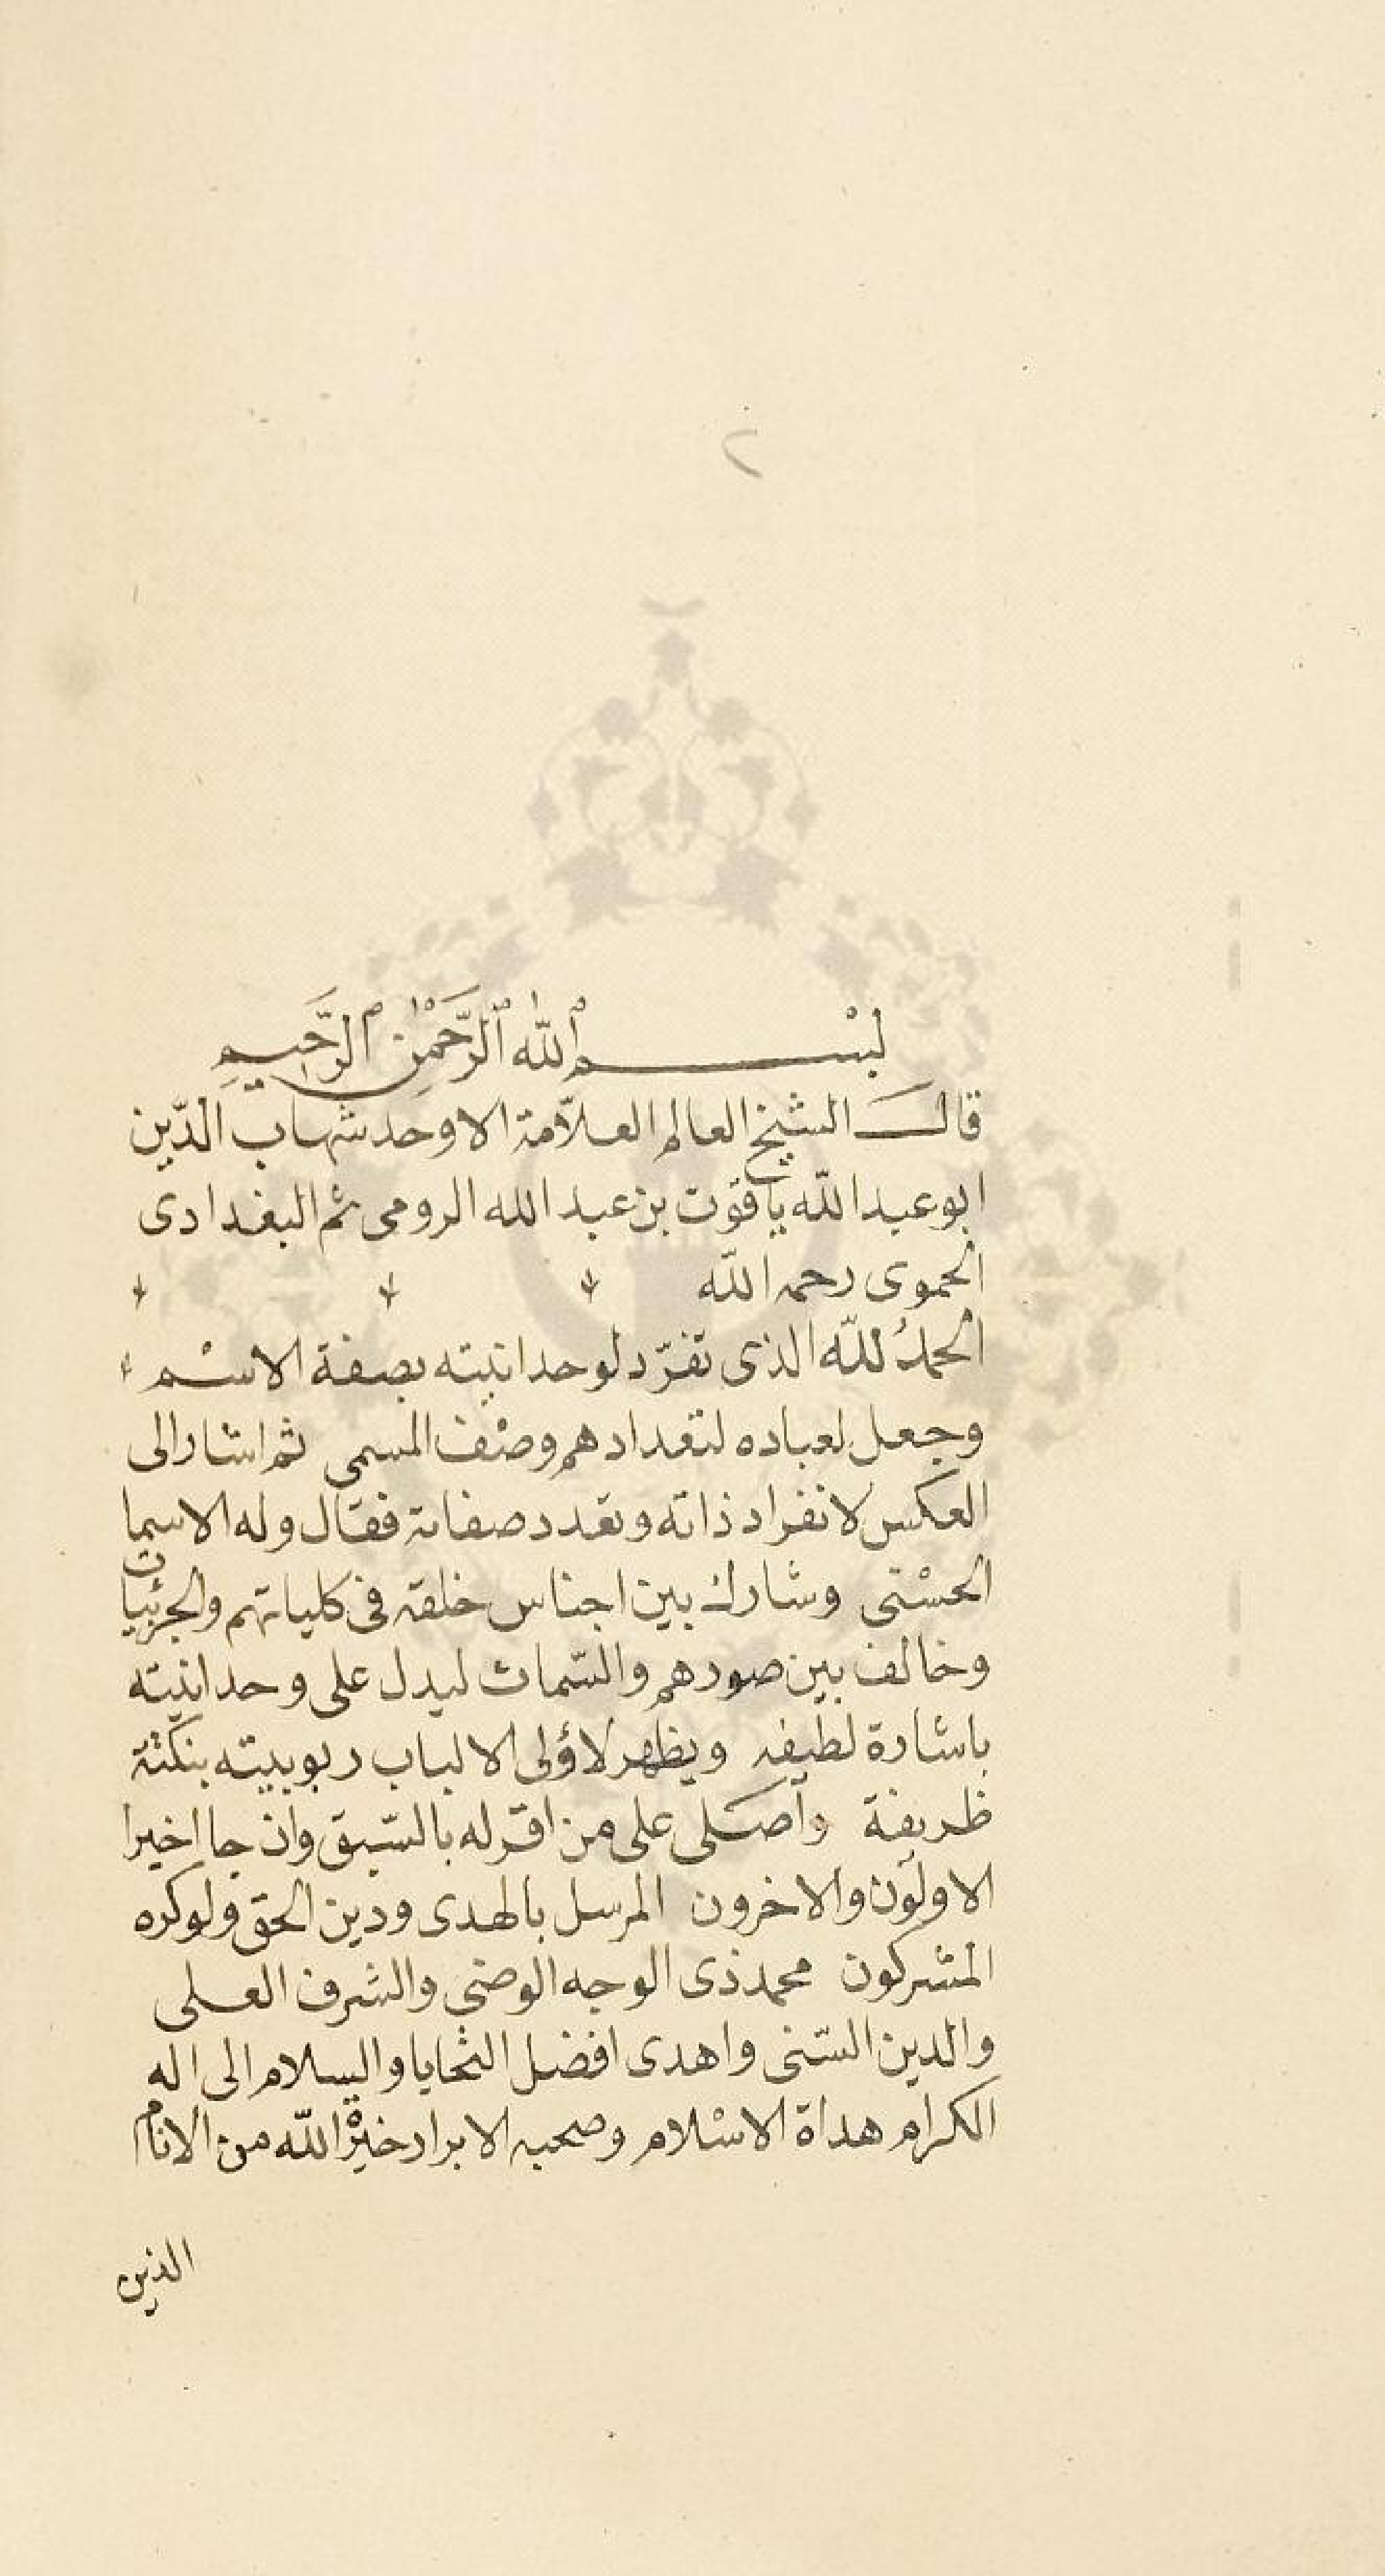 ٢
بِسْمِ ٱللّٰهِ ٱلرَّحْمٰنِ ٱلرَّحِيمِ
قال الشيخ العالم العلّامة الاوحد شهاب الدّين
ابو عبد اللّه ياقوت بن عبد الله الرومى ثم البغدادى
الحموى رحمه اللّه
الحمدُ للّه الذى تفرّد لوحدانيته بصفة الاسْم
وجعل لعباده لتعدادهم وصْف المسمى ثم اشار الى
العكس لانفراد ذاته وتعدد صفاته فقال وله الاسما
الحسْنى وشارك بين اجناس خلقه فى كلياتهم والجزئيات
وخالف بين صورهم والسّمات ليدل على وحدانيته
باشارة لطيفه ويظهر لاؤلى الالباب ربوبيته بنكتة
ظريفة وأصَلى على من اقرّ له بالسّبق وان جا اخيرا
الاولون والاخرون المرسل بالهدى ودين الحق ولو كره
المشركون محمد ذى الوجه الوضئ والشرف العلى
والدين السّنى واهدى افضل التحايا والسلام الى اله
الكرام هداة الاسْلام وصحبه الابرار خيرْة اللّه من الانام
الذين